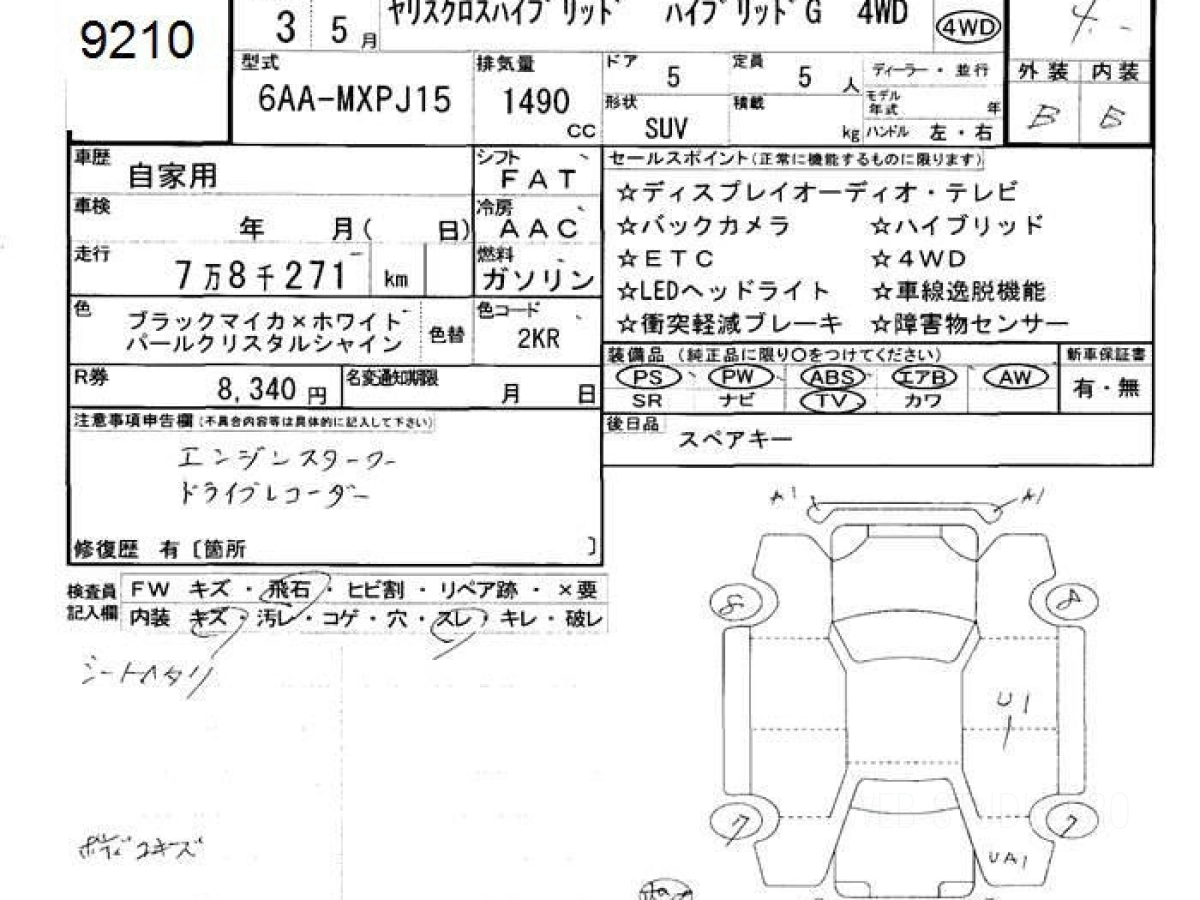 9210
3 5 月 ヤリスクロスハイブリッド ハイブリッドG 4WD 4WD 4
型式 6AA-MXPJ15
排気量 1490 cc
ドア 5
定員 5 人
ディーラー・並行
形状 SUV
積載 kg
モデル年式 年
ハンドル 左・右
外装 内装
B B
車歴 自家用
シフト FAT
車検 年 月( 日)
冷房 AAC
走行 7万8千271 km
燃料 ガソリン
色 ブラックマイカ×ホワイト
パールクリスタルシャイン 色替
色コード 2KR
R券 8,340 円
名変通知期限 月 日
セールスポイント(正常に機能するものに限ります)
☆ディスプレイオーディオ・テレビ
☆バックカメラ ☆ハイブリッド
☆ETC ☆4WD
☆LEDヘッドライト ☆車線逸脱機能
☆衝突軽減ブレーキ ☆障害物センサー
装備品(純正品に限り○をつけてください) 新車保証書
PS PW ABS エアB AW 有・無
SR ナビ TV カワ
後日品 スペアキー
注意事項申告欄(不具合内容等は具体的に記入して下さい)
エンジンスターター
ドライブレコーダー
修復歴 有〔箇所 〕
検査員記入欄
FW キズ・飛石・ヒビ割・リペア跡・×要
内装 キズ・汚レ・コゲ・穴・スレ・キレ・破レ
シートヘタリ
ボディコキズ
A1 A1
8 8
U1
7 7
UA1